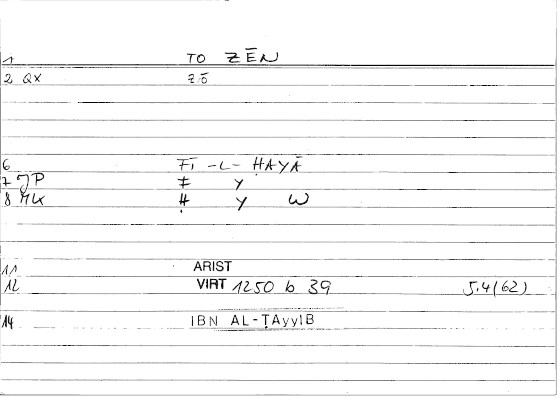 1 TO ZĒN
2 QX ZŌ
6 FĪ -L- ḤAYĀ
7 JP
8 MK Ḥ Y W
11 ARIST
12 VIRT 1250 b 39 5.4(62)
14 IBN AL-ṬAyyIB